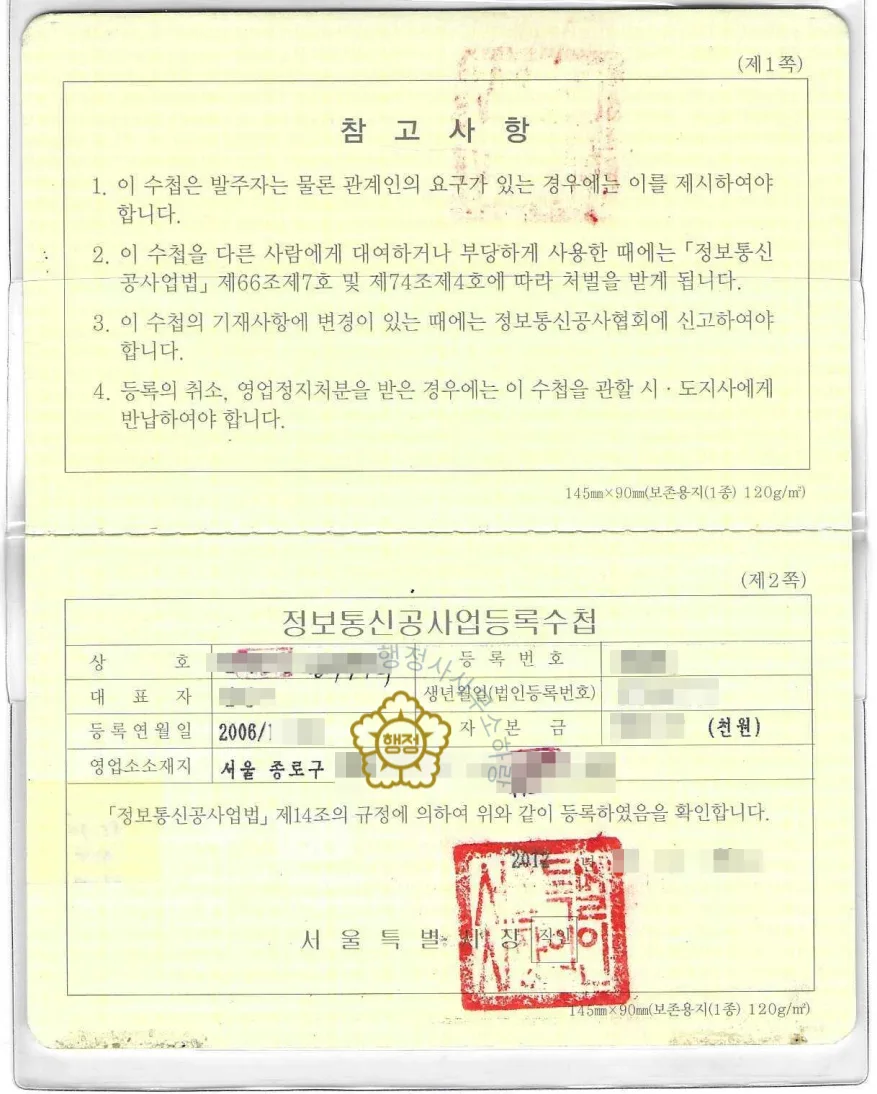 (제1쪽)
참 고 사 항
1. 이 수첩은 발주자는 물론 관계인의 요구가 있는 경우에는 이를 제시하여야
합니다.
2. 이 수첩을 다른 사람에게 대여하거나 부당하게 사용한 때에는 「정보통신
공사업법」 제66조제7호 및 제74조제4호에 따라 처벌을 받게 됩니다.
3. 이 수첩의 기재사항에 변경이 있는 때에는 정보통신공사협회에 신고하여야
합니다.
4. 등록의 취소, 영업정지처분을 받은 경우에는 이 수첩을 관할 시·도지사에게
반납하여야 합니다.
145㎜×90㎜(보존용지(1종) 120g/㎡)
(제2쪽)
정보통신공사업등록수첩
상 호 등 록 번 호
대 표 자 생년월일(법인등록번호)
등록연월일 2006/1 자 본 금 (천원)
영업소소재지 서울 종로구
행정사사무소하랑
행정
「정보통신공사업법」 제14조의 규정에 의하여 위와 같이 등록하였음을 확인합니다.
년
서 울 특 별 시 장 직인
145㎜×90㎜(보존용지(1종) 120g/㎡)